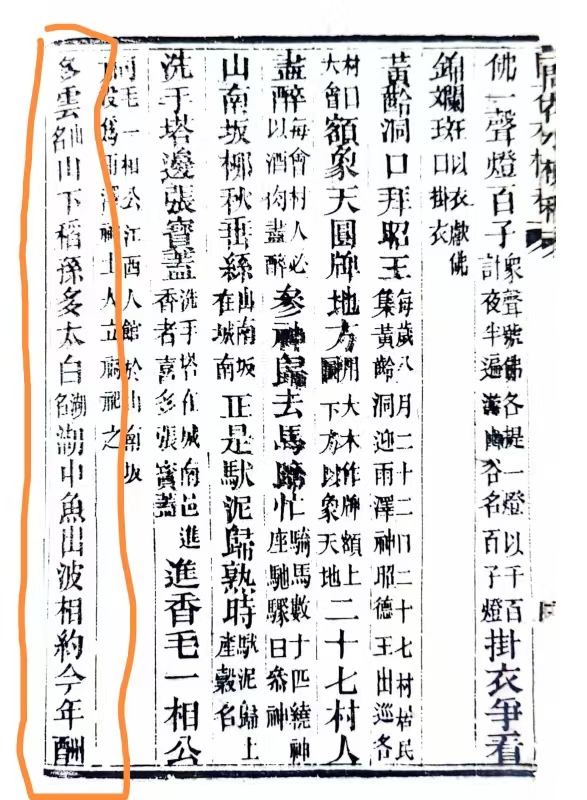 佛一聲燈百子眾聲號佛各提一燈以千百計夜半遍滿幽谷名百子燈掛衣爭看
錦斕斑以衣獻佛曰掛衣
黃齡洞口拜昭王每歲八月二十二日二十七村居民集黃齡洞迎雨澤神昭德王出巡各
村口大會額象天圓牌地方用大木作牌額上圓下方以象天地二十七村人
盡醉每會村人必以酒肉盡醉參神歸去馬蹄忙騎馬數十匹繞神座馳驟日參神
山南坂柳秋垂絲山南坂在城南正是馱泥歸熟時馱泥歸上產穀名
洗手塔邊張寶蓋洗手塔在城南邑進香者喜多張寶蓋進香毛一相公
毛一相公江西人館於山南坂歿為雨澤神土人立廟祀之
多雲山名山下稻孫多太白湖名湖中魚出波相約今年酬